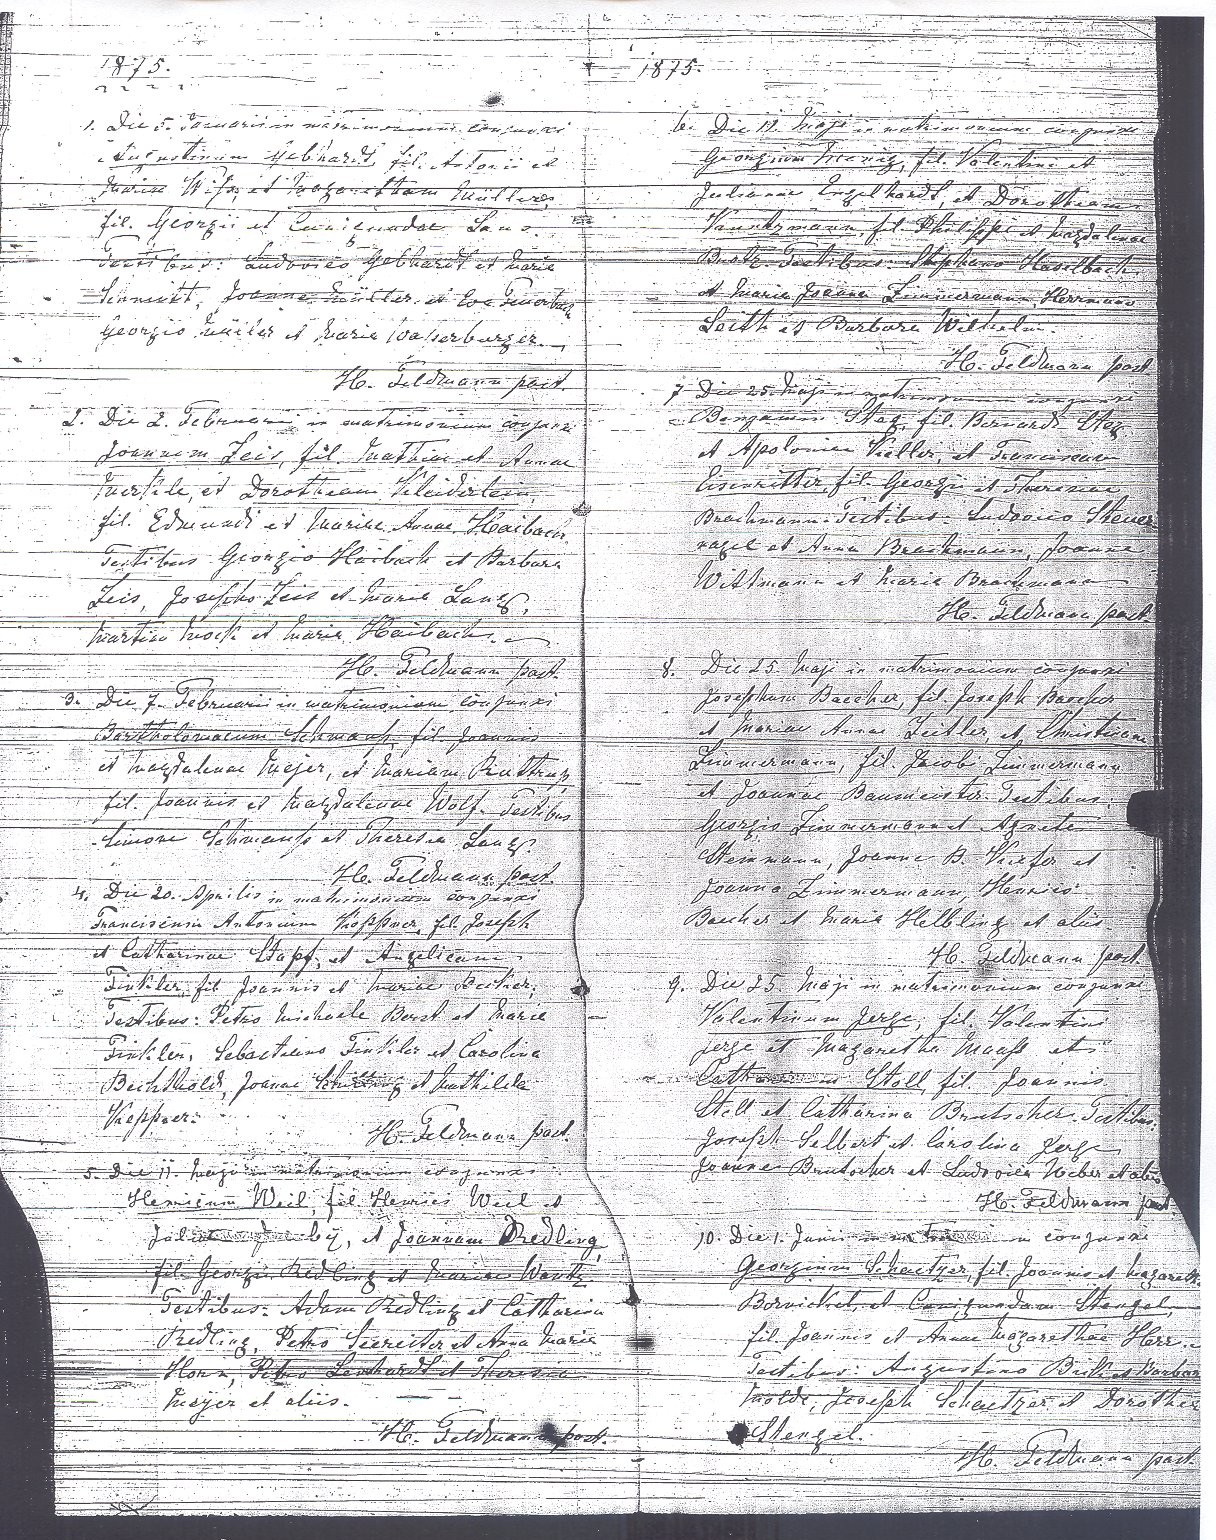 1875.
1. Die 5. Januarii in matrimonium conjunxi
Augustinum Gebhardt, fil. Antonii et
Mariae et Magarettam Müller,
fil. Georgii et Cunigundae Lang.
Testibus: Ludovico Gebhardt et Maria
Schmitt, Joanne Müller et Eva
Georgio Müller et Maria Wasserburger.
H. Feldmann past.
2. Die 2. Februarii in matrimonium conjunxi
Joannem Zeis, fil. Mathiae et Annae
et Dorotheam Kleiderlein,
fil. Edmundi et Mariae Annae Haibach
Testibus Georgio Haibach et Barbara
Zeis, Josepho Zeis et Maria Lang,
Martin Mock et Maria Haibach.
H. Feldmann past.
3. Die 7. Februarii in matrimonium conjunxi
Bartholomaeum Schmauß, fil. Joannis
et Magdalenae Meyer, et Mariam
fil. Joannis et Magdalenae Wolf. Testibus
Simone Schmauß et Theresia Lang.
H. Feldmann past.
4. Die 20. Aprilis in matrimonium conjunxi
Franciscum Antonium Köppner, fil. Joseph
et Catharinae Stapf, et Angelicam
Finkler, fil Joannis et Mariae Becker,
Testibus: Petro Michaele Borst et Maria
Finkler, Sebastiano Finkler et Carolina
Bechthold, Joanne Schilling et Mathilda
Keppner.
H. Feldmann past.
5. Die 11. Maji in matrimonium conjunxi
Henricum Weil, fil. Henrici Weil et
et Joannam Redling,
fil. Georgii Redling et Mariae Wantz
Testibus: Adam Redling et Catharina
Redling, Petro et Anna Maria
Horn, Petro Lenhardt et Theresia
Meyer et aliis.
H. Feldmann past.
1875.
6. Die 11. Maji in matrimonium conjunxi
Georgium Hoenig, fil. Valentini et
Julianae Engelhardt, et Dorotheam
Kauntzmann, fil. Philippi et Magdalenae
Testibus: Stephano Haselbach
et Maria Joanna Zimmermann, Herrmano
Leith et Barbara Wilhelm.
H. Feldmann past
7 Die 25. Maji in matrimonium conjunxi
Benjamin Steg, fil. Bernardi Steg
et Apoloniae Keller, et Franciscam
Eisenritter, fil. Georgii et Theresiae
Brachmann. Testibus Ludovico Steuer
nagel et Anna Brachmann, Joanne
Wittmann et Maria Brachmann
H. Feldmann past.
8. Die 25. Maji in matrimonium conjunxi
Josephum Baecher, fil. Joseph Baecher
et Mariae Annae Zeitler, et Christianam
Zimmermann, fil. Jacobi Zimmermann
et Joannae Baumeister. Testibus:
Georgio Zimmermann et Agneta
Steinmann, Joanne B. Kiefer et
Joanna Zimmermann, Henrico
Baecher et Maria Helbling et aliis.
H. Feldmann past.
9. Die 25. Maji in matrimonium conjunxi
Valentinum Jerge, fil. Valentini
Jerge et Magaretha Maaß et
Stoll, fil. Joannis
Stoll et Catharina Brutscher. Testibus.
Joseph Selbert et Carolina Jerge
Joanne Brutscher et Ludovica Weber et aliis
H. Feldmann past.
10. Die 1. Junii in conjunxi
Georgium Schaetzer, fil. Joannis et Magareth.
Bornickel, et Cunigundam Stengel,
fil. Joannis et Annae Magarethae Herr.
Testibus: Augustino et Barbara
Molde, Joseph Schaetzer et Dorothea
Stengel.
H. Feldmann past.